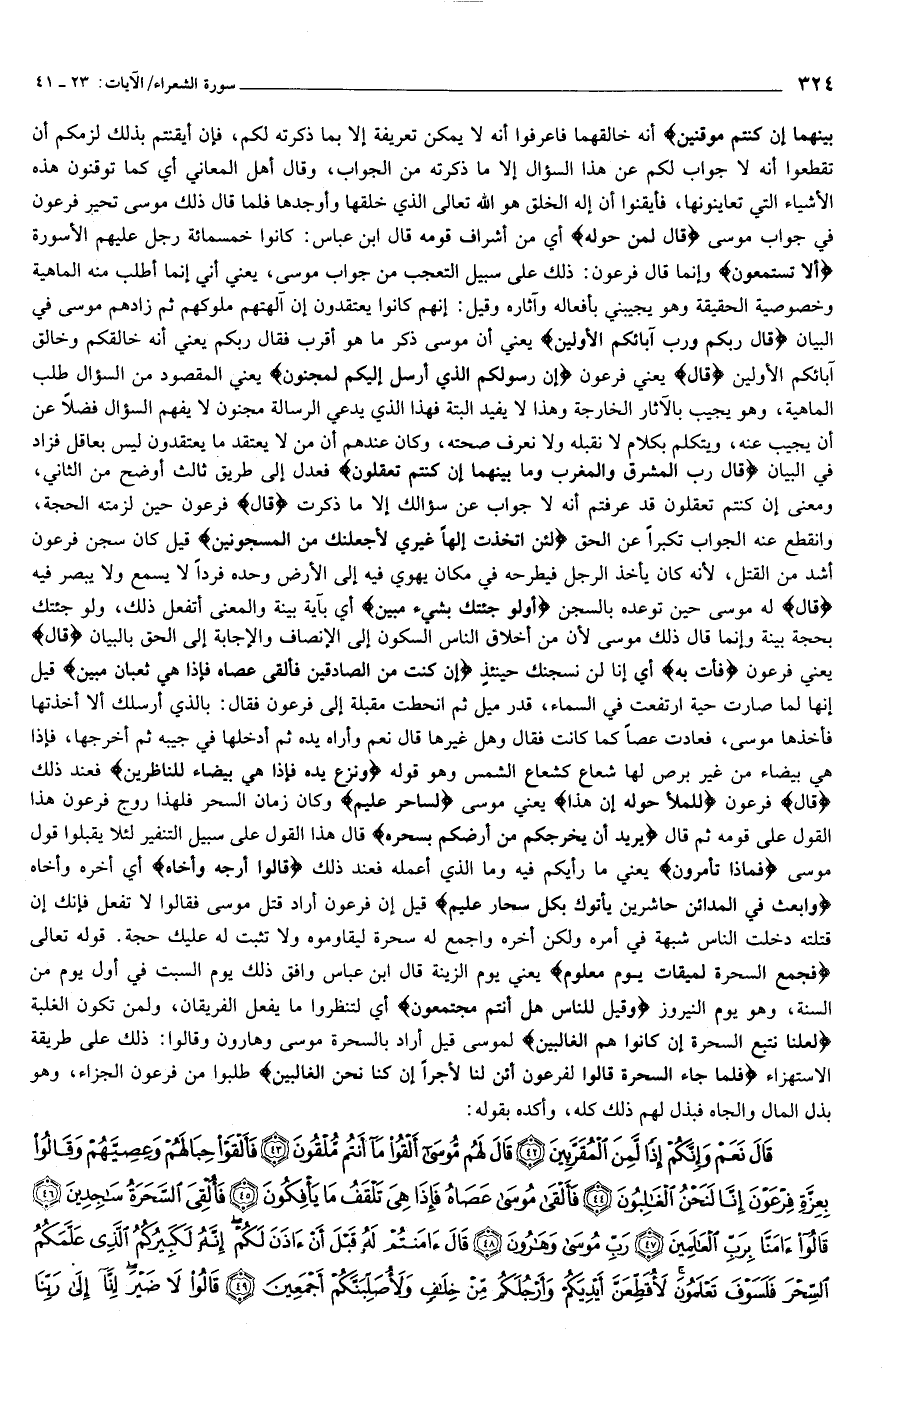 ٣٢٤ سورة الشعراء/ الآيات: ٢٣ ـ ٤١
بينهما إن كنتم موقنين﴾ أنه خالقهما فاعرفوا أنه لا يمكن تعريفة إلا بما ذكرته لكم، فإن أيقنتم بذلك لزمكم أن
تقطعوا أنه لا جواب لكم عن هذا السؤال إلا ما ذكرته من الجواب، وقال أهل المعاني أي كما توقنون هذه
الأشياء التي تعاينونها، فأيقنوا أن إله الخلق هو الله تعالى الذي خلقها وأوجدها فلما قال ذلك موسى تحير فرعون
في جواب موسى ﴿قال لمن حوله﴾ أي من أشراف قومه قال ابن عباس: كانوا خمسمائة رجل عليهم الأسورة
﴿ألا تستمعون﴾ وإنما قال فرعون: ذلك على سبيل التعجب من جواب موسى، يعني أني إنما أطلب منه الماهية
وخصوصية الحقيقة وهو يجيبني بأفعاله وآثاره وقيل: إنهم كانوا يعتقدون إن آلهتهم ملوكهم ثم زادهم موسى في
البيان ﴿قال ربكم ورب آبائكم الأولين﴾ يعني أن موسى ذكر ما هو أقرب فقال ربكم يعني أنه خالقكم وخالق
آبائكم الأولين ﴿قال﴾ يعني فرعون ﴿إن رسولكم الذي أرسل إليكم لمجنون﴾ يعني المقصود من السؤال طلب
الماهية، وهو يجيب بالآثار الخارجة وهذا لا يفيد البتة فهذا الذي يدعي الرسالة مجنون لا يفهم السؤال فضلاً عن
أن يجيب عنه، ويتكلم بكلام لا نقبله ولا نعرف صحته، وكان عندهم أن من لا يعتقد ما يعتقدون ليس بعاقل فزاد
في البيان ﴿قال رب المشرق والمغرب وما بينهما إن كنتم تعقلون﴾ فعدل إلى طريق ثالث أوضح من الثاني،
ومعنى إن كنتم تعقلون قد عرفتم أنه لا جواب عن سؤالك إلا ما ذكرت ﴿قال﴾ فرعون حين لزمته الحجة،
وانقطع عنه الجواب تكبراً عن الحق ﴿لئن اتخذت إلهاً غيري لأجعلنك من المسجونين﴾ قيل كان سجن فرعون
أشد من القتل، لأنه كان يأخذ الرجل فيطرحه في مكان يهوي فيه إلى الأرض وحده فرداً لا يسمع ولا يبصر فيه
﴿قال﴾ له موسى حين توعده بالسجن ﴿أولو جئتك بشيء مبين﴾ أي بآية بينة والمعنى أتفعل ذلك، ولو جئتك
بحجة بينة وإنما قال ذلك موسى لأن من أخلاق الناس السكون إلى الإنصاف والإجابة إلى الحق بالبيان ﴿قال﴾
يعني فرعون ﴿فأت به﴾ أي إنا لن نسجنك حينئذٍ ﴿إن كنت من الصادقين فألقى عصاه فإذا هي ثعبان مبين﴾ قيل
إنها لما صارت حية ارتفعت في السماء، قدر ميل ثم انحطت مقبلة إلى فرعون فقال: بالذي أرسلك ألا أخذتها
فأخذها موسى، فعادت عصاً كما كانت فقال وهل غيرها قال نعم وأراه يده ثم أدخلها في جيبه ثم أخرجها، فإذا
هي بيضاء من غير برص لها شعاع كشعاع الشمس وهو قوله ﴿ونزع يده فإذا هي بيضاء للناظرين﴾ فعند ذلك
﴿قال﴾ فرعون ﴿للملأ حوله إن هذا﴾ يعني موسى ﴿لساحر عليم﴾ وكان زمان السحر فلهذا روج فرعون هذا
القول على قومه ثم قال ﴿يريد أن يخرجكم من أرضكم بسحره﴾ قال هذا القول على سبيل التنفير لئلا يقبلوا قول
موسى ﴿فماذا تأمرون﴾ يعني ما رأيكم فيه وما الذي أعمله فعند ذلك ﴿قالوا أرجه وأخاه﴾ أي أخره وأخاه
﴿وابعث في المدائن حاشرين يأتوك بكل سحار عليم﴾ قيل إن فرعون أراد قتل موسى فقالوا لا تفعل فإنك إن
قتلته دخلت الناس شبهة في أمره ولكن أخره واجمع له سحرة ليقاوموه ولا تثبت له عليك حجة. قوله تعالى
﴿فجمع السحرة لميقات يوم معلوم﴾ يعني يوم الزينة قال ابن عباس وافق ذلك يوم السبت في أول يوم من
السنة، وهو يوم النيروز ﴿وقيل للناس هل أنتم مجتمعون﴾ أي لتنظروا ما يفعل الفريقان، ولمن تكون الغلبة
﴿لعلنا نتبع السحرة إن كانوا هم الغالبين﴾ لموسى قيل أراد بالسحرة موسى وهارون وقالوا: ذلك على طريقة
الاستهزاء ﴿فلما جاء السحرة قالوا لفرعون أئن لنا لأجراً إن كنا نحن الغالبين﴾ طلبوا من فرعون الجزاء، وهو
بذل المال والجاه فبذل لهم ذلك كله، وأكده بقوله:
قَالَ نَعَمْ وَإِنَّكُمْ إِذًا لَّمِنَ ٱلْمُقَرَّبِينَ ﴿٤٢﴾ قَالَ لَهُم مُّوسَىٰٓ أَلْقُوا۟ مَآ أَنتُم مُّلْقُونَ ﴿٤٣﴾ فَأَلْقَوْا۟ حِبَالَهُمْ وَعِصِيَّهُمْ وَقَالُوا۟
بِعِزَّةِ فِرْعَوْنَ إِنَّا لَنَحْنُ ٱلْغَٰلِبُونَ ﴿٤٤﴾ فَأَلْقَىٰ مُوسَىٰ عَصَاهُ فَإِذَا هِىَ تَلْقَفُ مَا يَأْفِكُونَ ﴿٤٥﴾ فَأُلْقِىَ ٱلسَّحَرَةُ سَٰجِدِينَ ﴿٤٦﴾
قَالُوٓا۟ ءَامَنَّا بِرَبِّ ٱلْعَٰلَمِينَ ﴿٤٧﴾ رَبِّ مُوسَىٰ وَهَٰرُونَ ﴿٤٨﴾ قَالَ ءَامَنتُمْ لَهُۥ قَبْلَ أَنْ ءَاذَنَ لَكُمْ ۖ إِنَّهُۥ لَكَبِيرُكُمُ ٱلَّذِى عَلَّمَكُمُ
ٱلسِّحْرَ فَلَسَوْفَ تَعْلَمُونَ ۚ لَأُقَطِّعَنَّ أَيْدِيَكُمْ وَأَرْجُلَكُم مِّنْ خِلَٰفٍ وَلَأُصَلِّبَنَّكُمْ أَجْمَعِينَ ﴿٤٩﴾ قَالُوا۟ لَا ضَيْرَ ۖ إِنَّآ إِلَىٰ رَبِّنَا